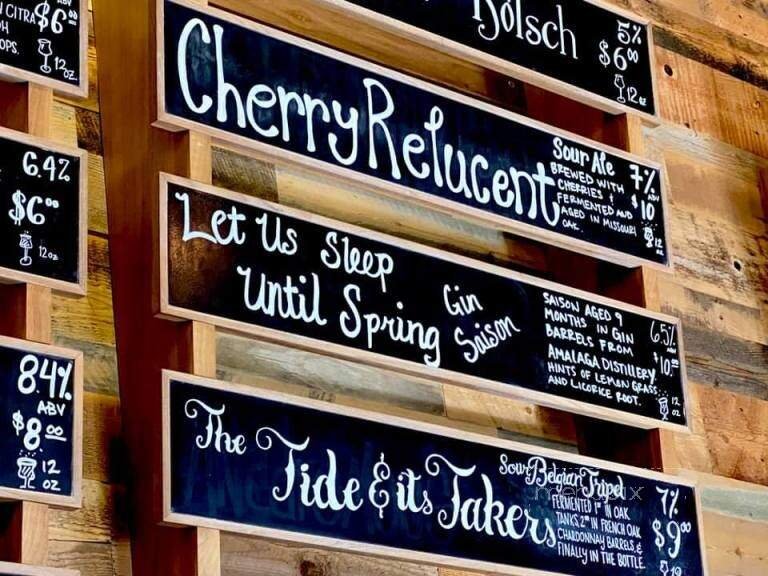 CITRA
$6.00
OH
OPS.
12 oz.
6.4%
$6.00
12 oz
8.4%
ABV
$8.00
12 oz
Kölsch
5%
$6.00
12 oz
Cherry Relucent
Sour Ale
BREWED WITH
CHERRIES &
FERMENTED AND
AGED IN MISSOURI
OAK.
7%
ABV
$10
12
Let Us Sleep
Until Spring
Gin
Saison
SAISON AGED 9
MONTHS IN GIN
BARRELS FROM
AMALAGA DISTILLERY.
HINTS OF LEMON GRASS
AND LICORICE ROOT.
6.5%
ABV
$10.00
12
oz
The Tide & its Takers
Sour Belgian Tripel
FERMENTED 1st IN OAK
TANKS, 2nd IN FRENCH OAK
CHARDONNAY BARRELS, &
FINALLY IN THE BOTTLE.
7%
$9.00
12